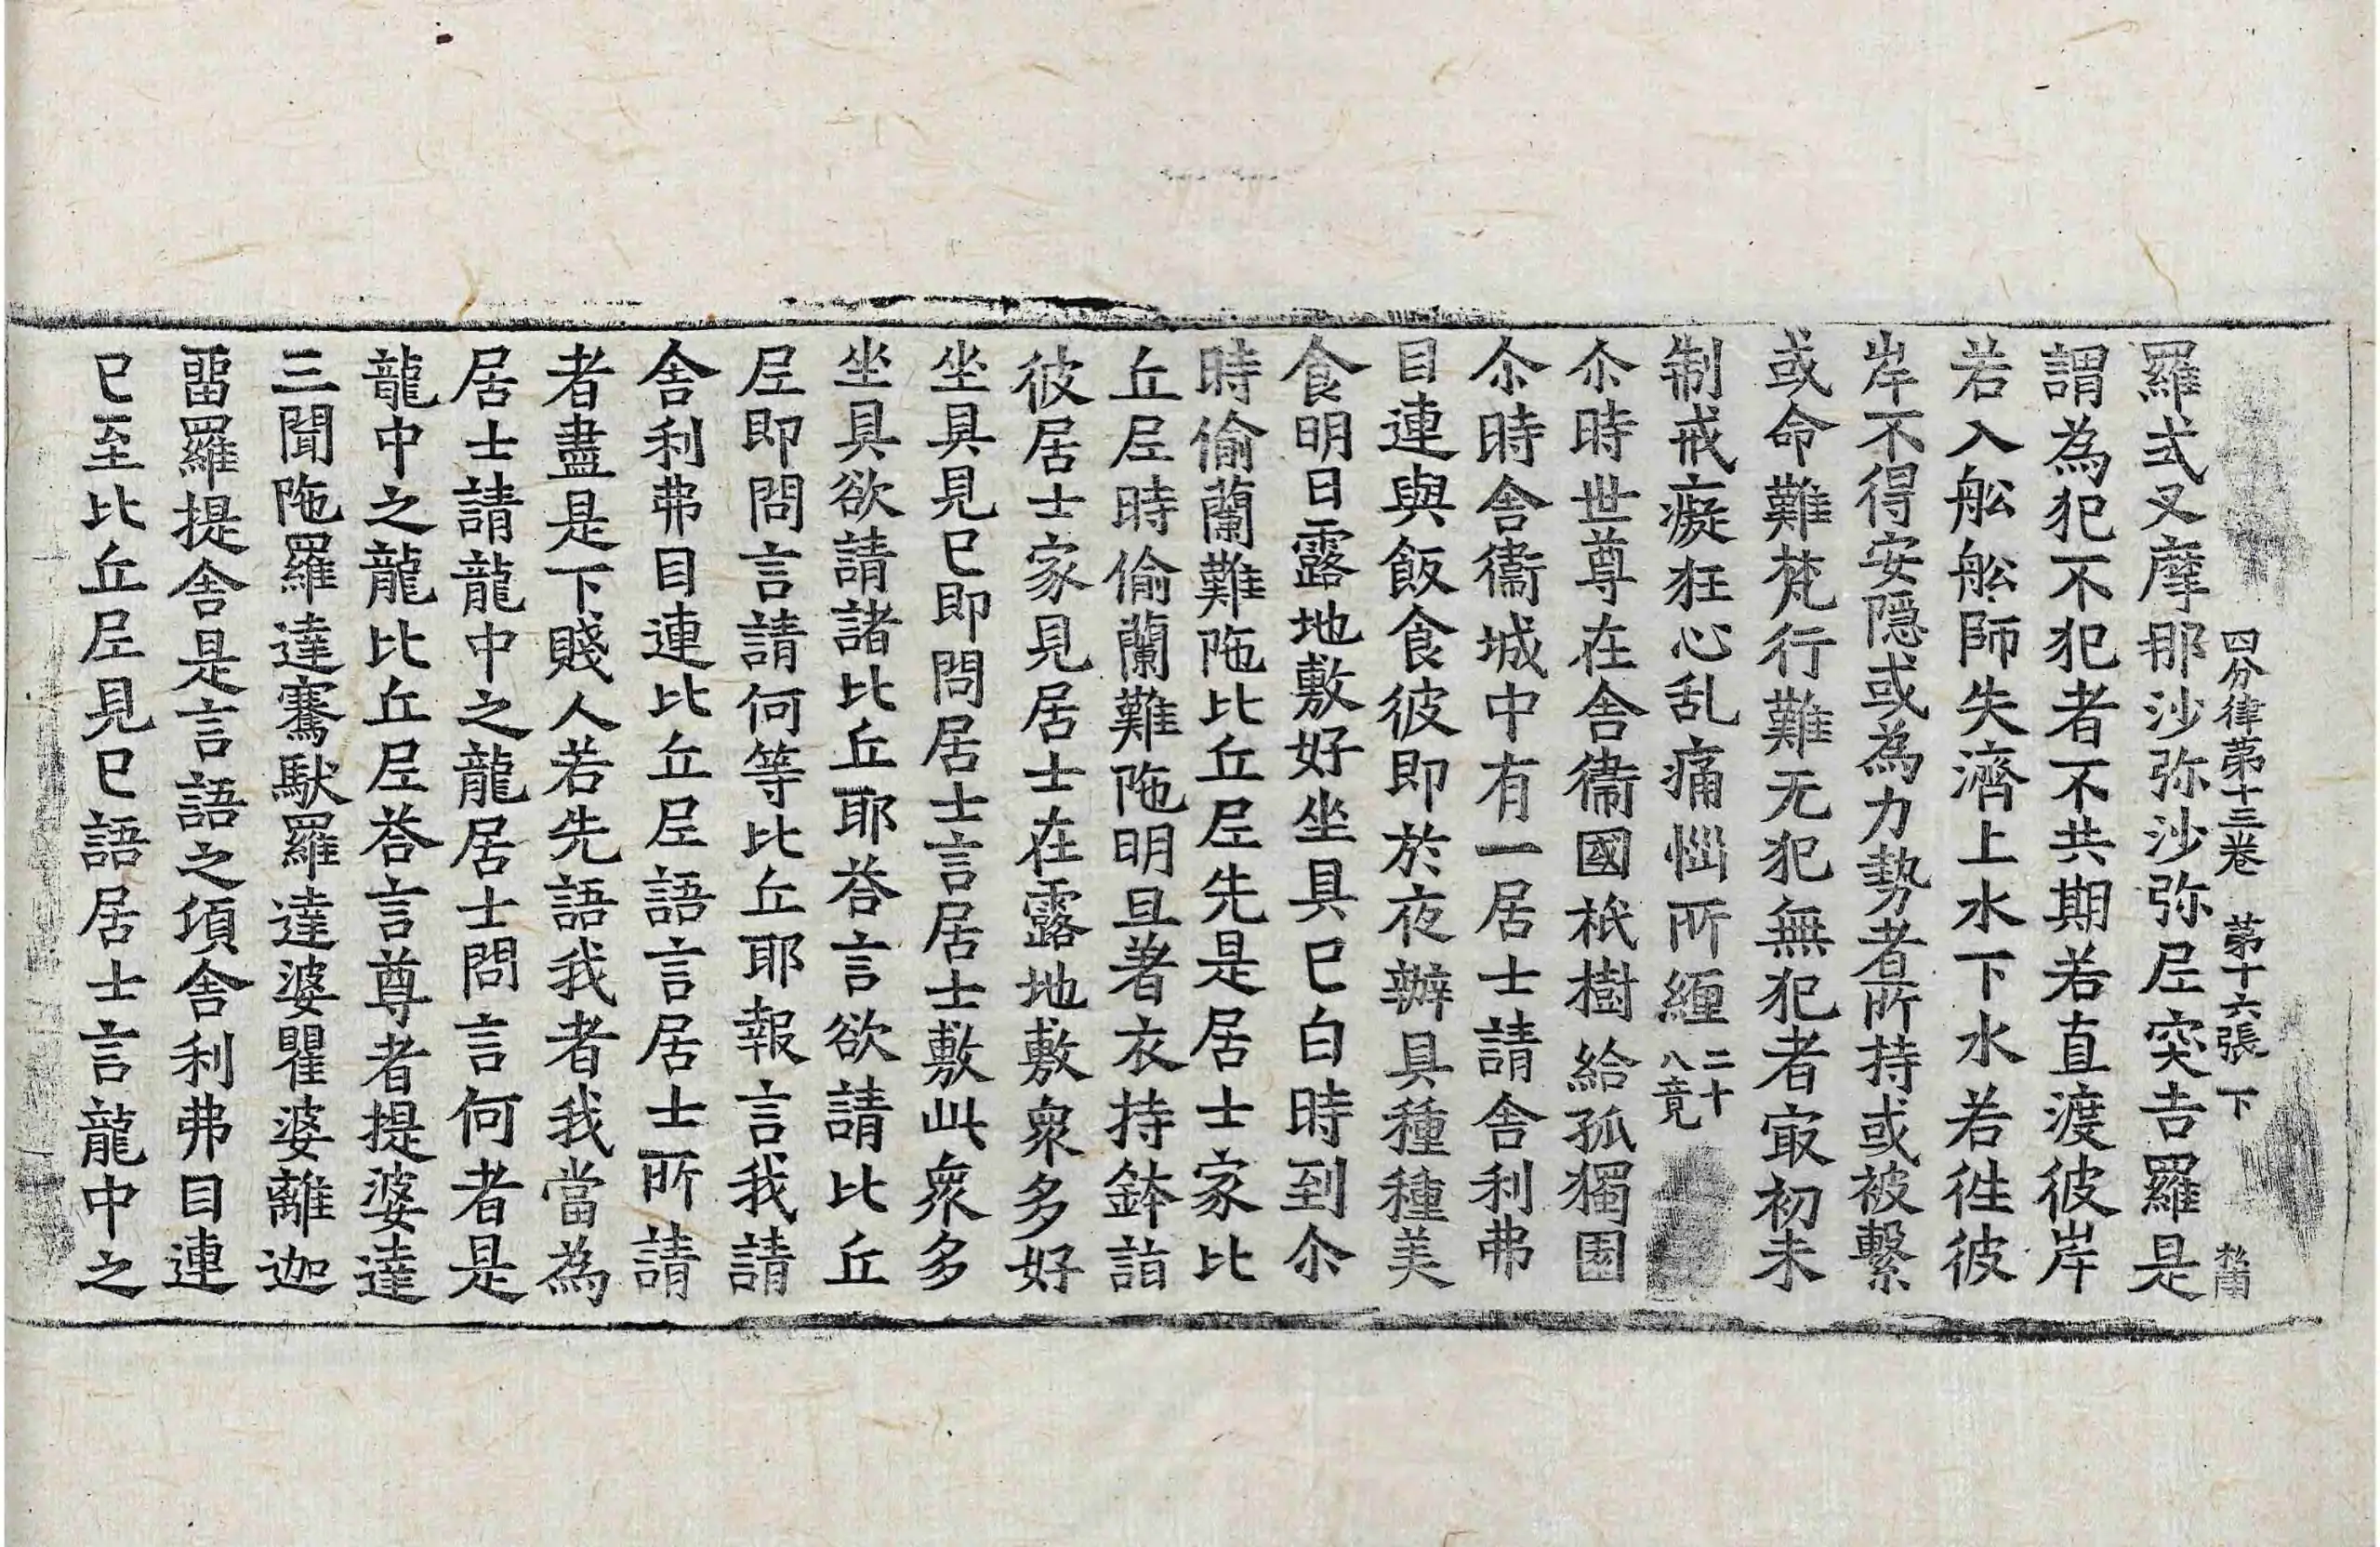 四分律苐十三卷 苐十六張 下
羅式叉摩那沙弥沙弥𡰱突吉羅是
謂為犯不犯者不共期若直渡彼岸
若入舩舩師失濟上水下水若徃彼
岸不得安隱或為力勢者所持或被繫
或命難梵行難无犯無犯者㝡初未
制戒癡狂心乱痛惱所纏二十八竟
尒時世尊在舍衞國祇樹給孤獨園
尒時舍衞城中有一居士請舍利弗
目連與飯食彼即於夜辦具種種美
食明日露地敷好坐具已白時到尒
時偷蘭難陁比丘𡰱先是居士家比
丘𡰱時偷蘭難陁明旦著衣持鉢詣
彼居士家見居士在露地敷衆多好
坐具見已即問居士言居士敷此衆多
坐具欲請諸比丘耶荅言欲請比丘
𡰱即問言請何等比丘耶報言我請
舍利弗目連比丘𡰱語言居士所請
者盡是下賤人若先語我者我當為
居士請龍中之龍居士問言何者是
龍中之龍比丘𡰱荅言尊者提婆達
三聞陁羅達騫䭾羅達婆瞿婆離迦
留羅提舍是言語之頃舍利弗目連
已至比丘𡰱見已語居士言龍中之